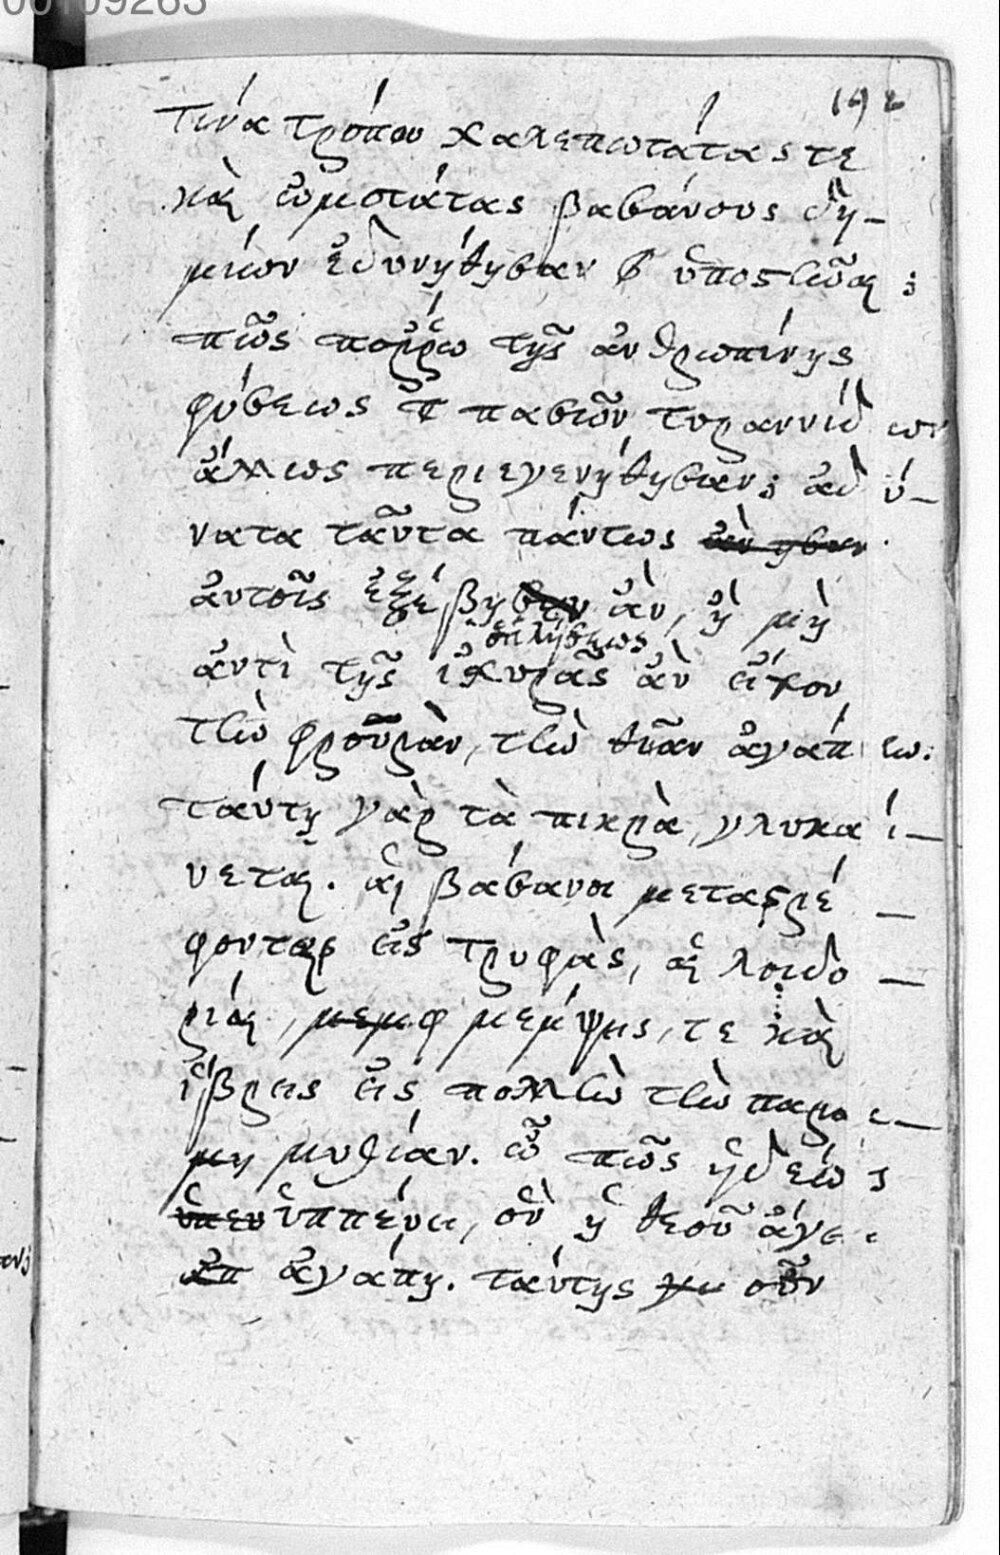 00109263
192
τίνα τρόπον χαλεπωτάτας τε
καὶ ὠμοτάτας βασάνους δη-
μίων ἐδυνήθησαν ὑποστῆναι;
πῶς πόῤῥω τῆς ἀνθρωπίνης
φύσεως τῶν πασῶν τυραννίδων
ἄλλως περιεγενήθησαν; ἀδύ-
νατα ταῦτα πάντως
αὐτοῖς ἐξέβη ἂν, ἢ μὴ
ἀντὶ τῆς ἰσχυρᾶς ἂν εἶχον
τὴν φρουρὰν, τὴν θείαν ἀγάπην.
ταύτῃ γὰρ τὰ πικρὰ, γλυκαί-
νεται. αἱ βάσανοι μεταστρέ-
φονται εἰς τρυφὰς, αἱ λοιδο-
ρίαι, μεμφ μέμψεις, τε καὶ
ὕβρεις εἰς πολλὴν τὴν παρα-
μη μυθίαν. ὢ πῶς ἡδέως
ὑπεν ὑππένει, οὗ ἡ θεοῦ ἄγει
ἀπ ἀγάπη. ταύτης γὰ οὖν